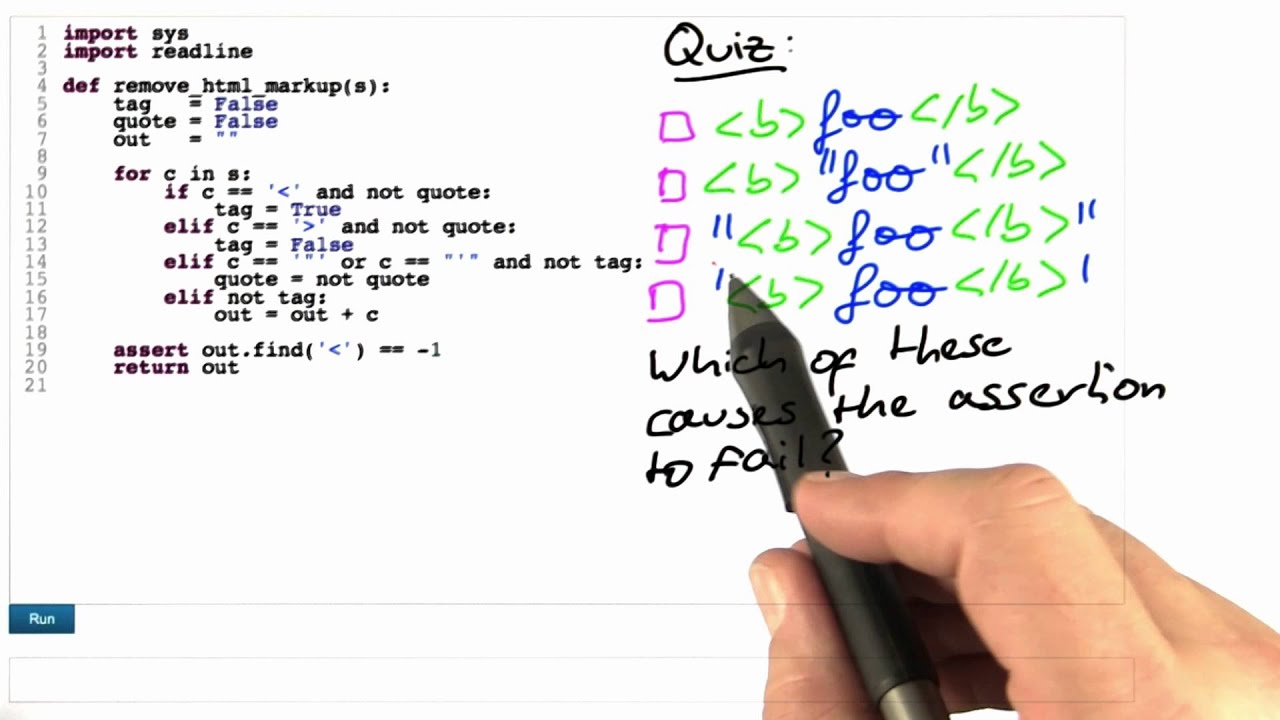 1 import sys
2 import readline
3
4 def remove_html_markup(s):
5     tag   = False
6     quote = False
7     out   = ""
8
9     for c in s:
10         if c == '<' and not quote:
11             tag = True
12         elif c == '>' and not quote:
13             tag = False
14         elif c == '"' or c == "'" and not tag:
15             quote = not quote
16         elif not tag:
17             out = out + c
18
19     assert out.find('<') == -1
20     return out
21
Run
Quiz:
<b> foo </b>
<b> "foo" </b>
"<b> foo </b>"
'<b> foo </b>'
Which of these
causes the assertion
to fail?